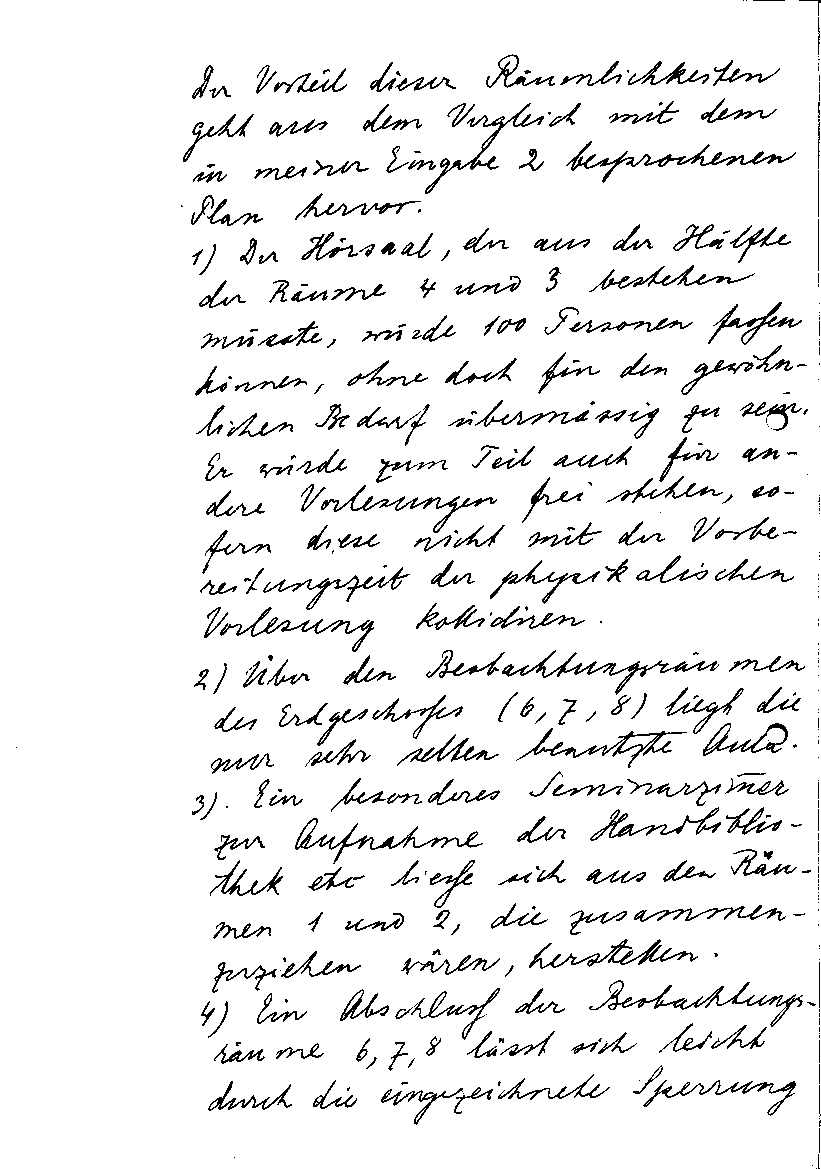 Der Vorteil dieser Räumlichkeiten
geht aus dem Vergleich mit dem
in meiner Eingabe 2 besprochenen
Plan hervor.
1) Der Hörsaal, der aus der Hälfte
der Räume 4 und 3 bestehen
müsste, würde 100 Personen fassen
können, ohne doch für den gewöhn-
lichen Bedarf übermässig zu sein.
Er würde zum Teil auch für an-
dere Vorlesungen frei stehen, so-
fern diese nicht mit der Vorbe-
reitungszeit der physikalischen
Vorlesung kollidiren.
2) Über den Beobachtungsräumen
des Erdgeschosses (6, 7, 8) liegt die
nur sehr selten benutzte Aula.
3). Ein besonderes Seminarzim̅er
zur Aufnahme der Handbiblio-
thek etc liesse sich aus den Räu-
men 1 und 2, die zusammen-
zuziehen wären, herstellen.
4) Ein Abschluss der Beobachtungs-
räume 6, 7, 8 lässt sich leicht
durch die eingezeichnete Sperrung